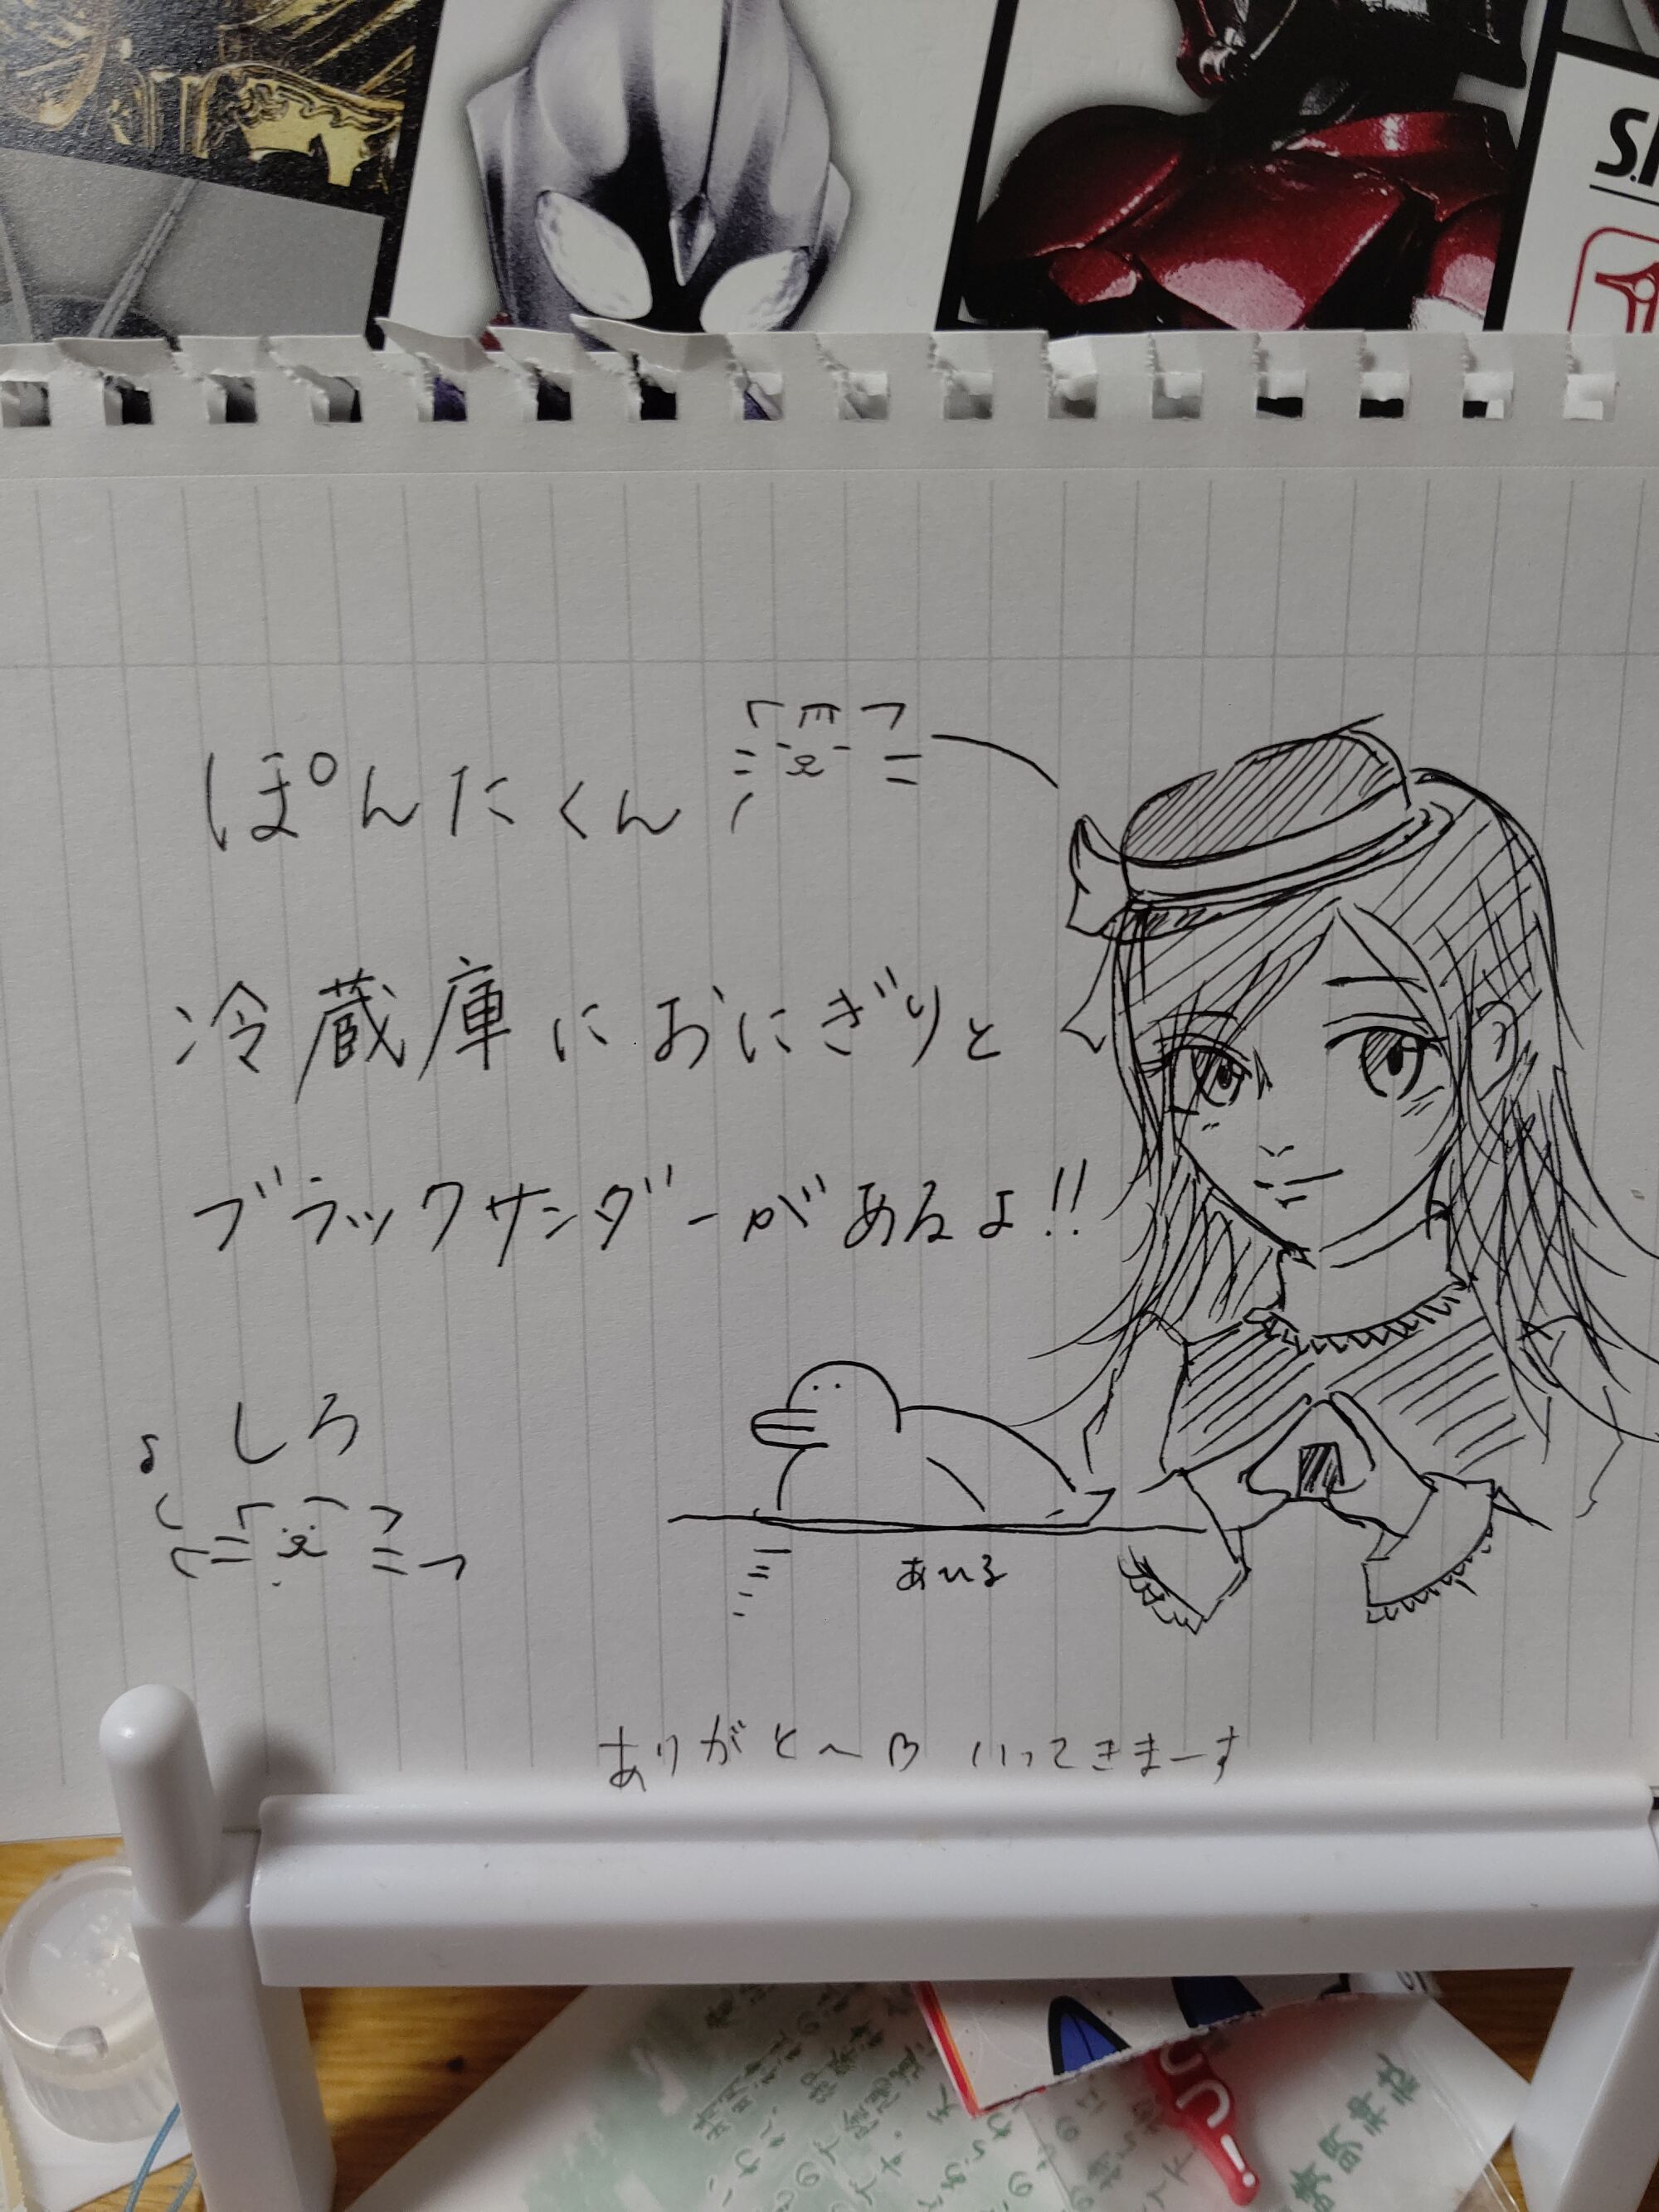 ぽんたくん
冷蔵庫におにぎりと
ブラックサンダーがあるよ!!
しろ
あひる
ありがと〜♡ いってきまーす